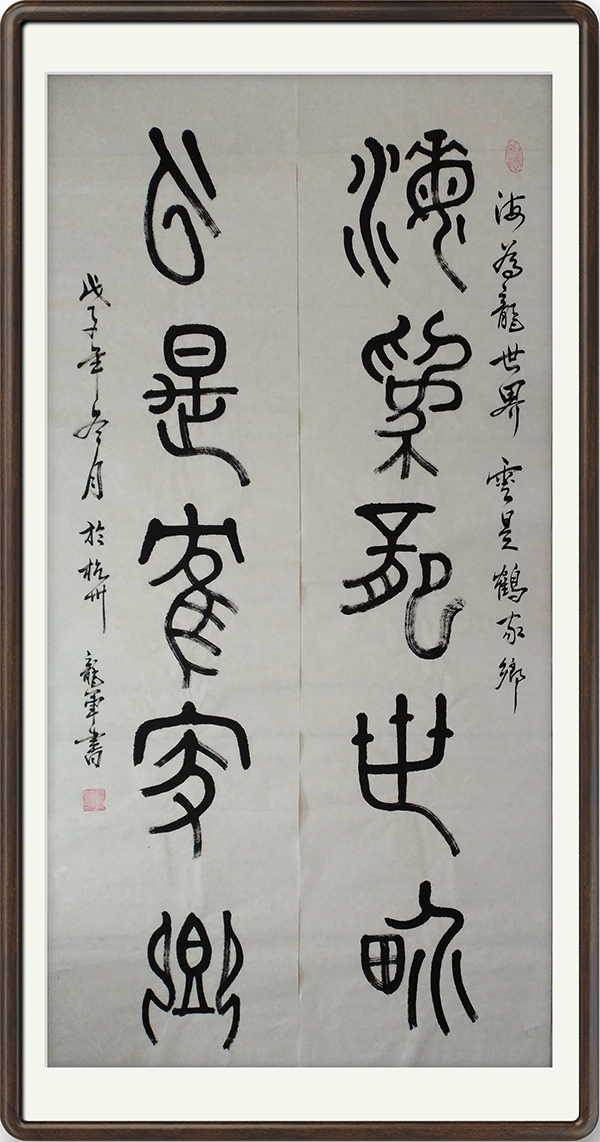 海為龍世界 雲是鶴家鄉
海為龍世界
云是隺家鄉
戊子年冬月於杭州 龍軍書